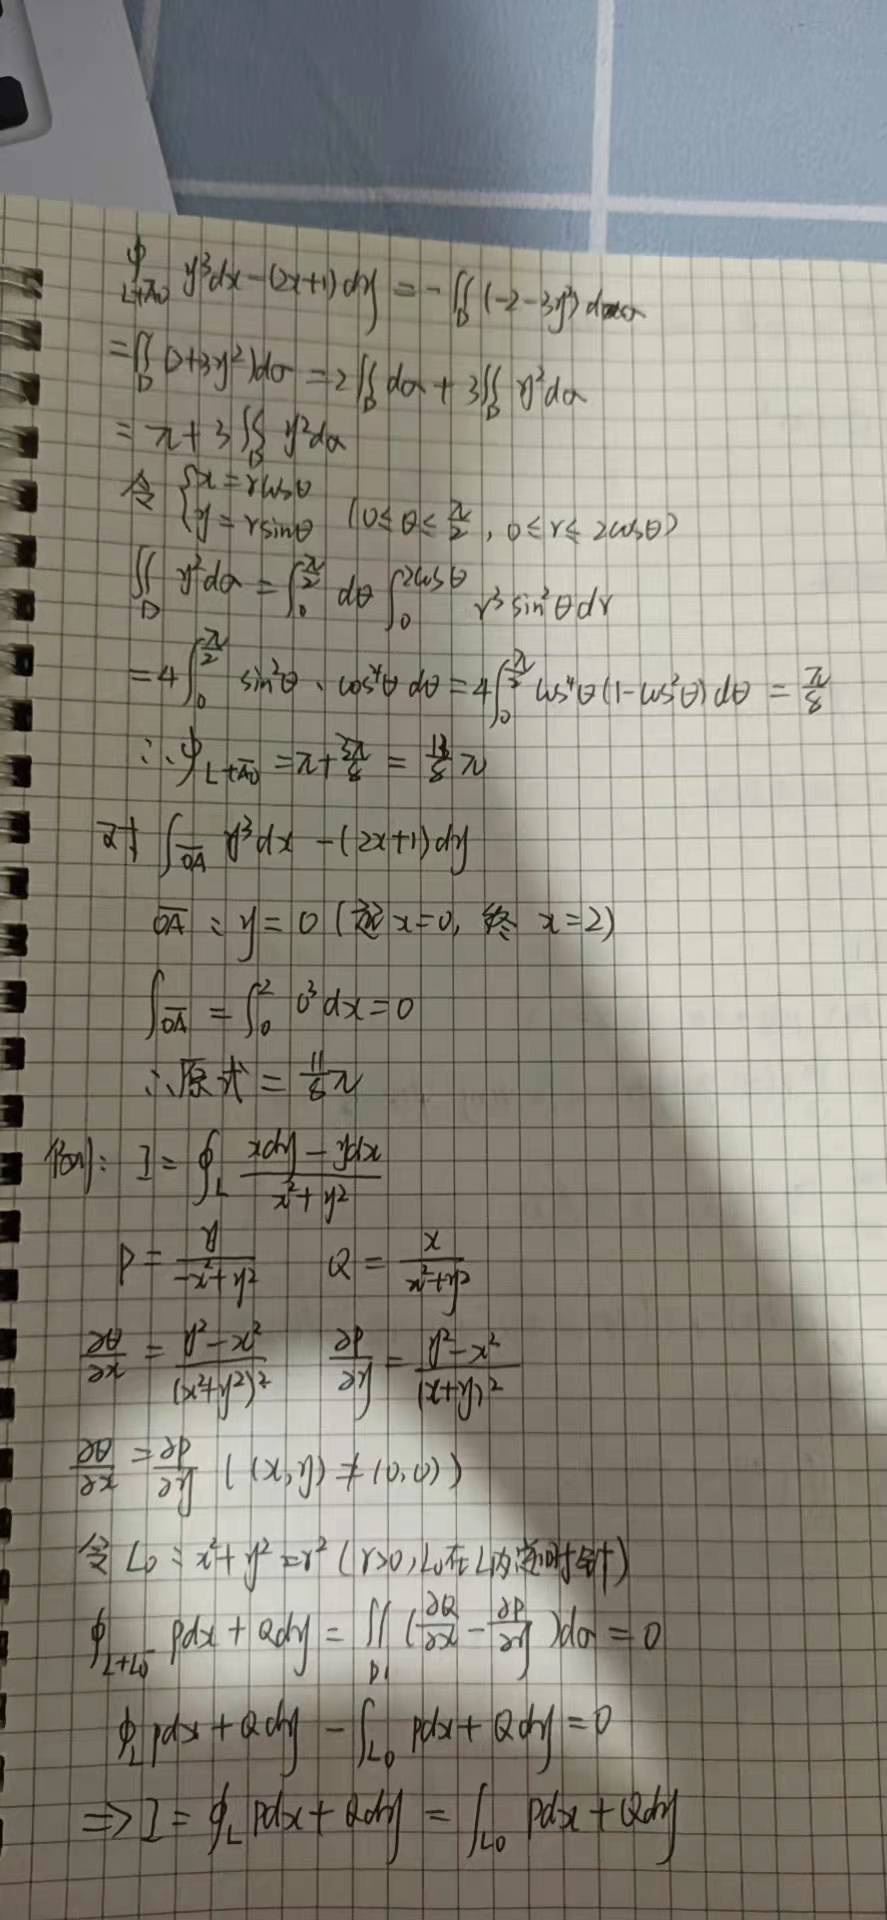 ∮_{L+\overline{AO}} y³dx-(2x+1)dy = -∬_D (-2-3y²)dσ
=∬_D (2+3y²)dσ = 2∬_D dσ + 3∬_D y²dσ
= π+3∬_D y²dσ
令 {x=rcosθ
y=rsinθ (0≤θ≤π/2, 0≤r≤2cosθ)
∬_D y²dσ = ∫_0^{π/2} dθ ∫_0^{2cosθ} r³sin²θdr
=4∫_0^{π/2} sin²θ·cos⁴θdθ=4∫_0^{π/2} cos⁴θ(1-cos²θ)dθ = π/8
∴∮_{L+\overline{AO}} =π+3π/8 = 11/8 π
对 ∫_{\overline{OA}} y³dx-(2x+1)dy
\overline{OA}: y=0 (起x=0, 终 x=2)
∫_{\overline{OA}} = ∫_0^2 0³dx=0
∴原式=11/8 π
例: I=∮_L (xdy-ydx)/(x²+y²)
P= y/(-x²+y²) Q= x/(x²+y²)
∂Q/∂x = (y²-x²)/(x²+y²)² ∂P/∂y = (y²-x²)/(x+y)²
∂Q/∂x = ∂P/∂y ((x,y)≠(0,0))
令 L₀: x²+y²=r² (r>0, L₀在L内逆时针)
∮_{L+L₀⁻} Pdx+Qdy = ∬_{D₁} (∂Q/∂x - ∂P/∂y)dσ=0
∮_L Pdx+Qdy - ∫_{L₀} Pdx+Qdy=0
⇒I=∮_L Pdx+Qdy = ∫_{L₀} Pdx+Qdy